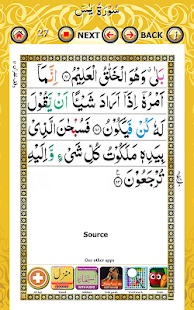 سُورَة يٰس
27 NEXT BACK
بَلٰى وَهُوَ الْخَلّٰقُ الْعَلِيْمُ ۝ اِنَّمَاۤ
اَمْرُهٗۤ اِذَاۤ اَرَادَ شَيْـًٔا اَنْ يَّقُوْلَ
لَهٗ كُنْ فَيَكُوْنُ ۝ فَسُبْحٰنَ الَّذِيْ
بِيَدِهٖ مَلَكُوْتُ كُلِّ شَيْءٍ وَّاِلَيْهِ
تُرْجَعُوْنَ ۝
Source
Our other apps
منزل